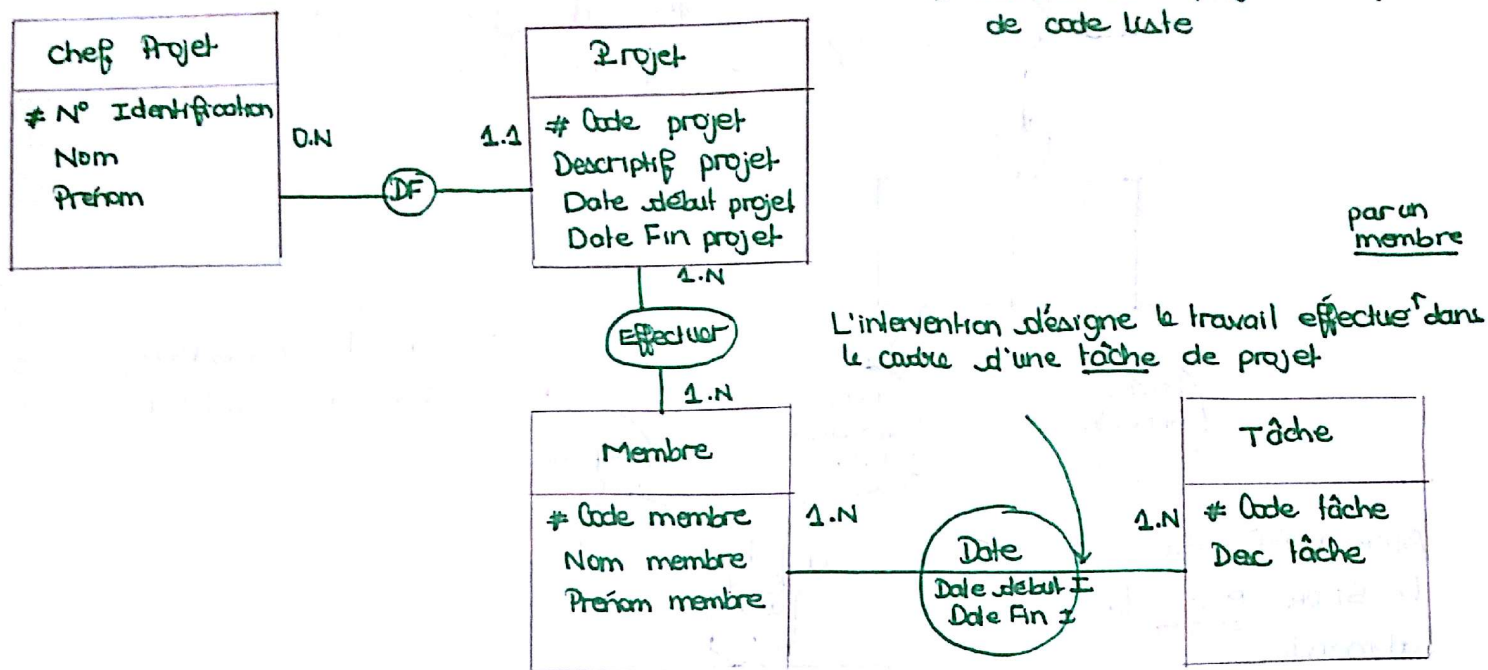 de code liste
Chef Projet
# N° Identification
Nom
Prénom
0.N
DF
1.1
Projet
# Code projet
Descriptif projet
Date début projet
Date Fin projet
1.N
Effectuer
1.N
par un
membre
L'intervention désigne le travail effectué dans
le cadre d'une tâche de projet
Membre
# Code membre
Nom membre
Prénom membre
1.N
Date
Date début I
Date Fin I
1.N
Tâche
# Code tâche
Desc tâche